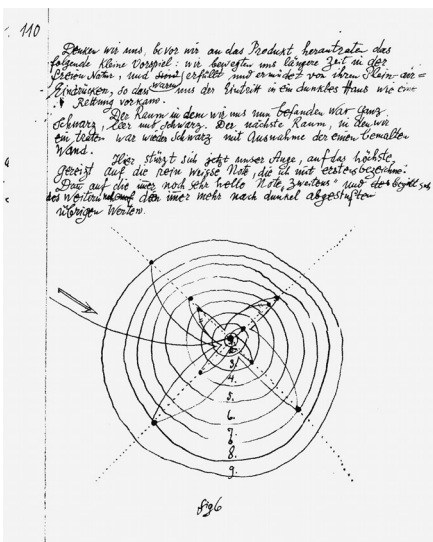 110
Denken wir uns, bevor wir an das Produkt herantreten das
folgende kleine Vorspiel: wir bewegten uns längere Zeit in der
freien Natur, und sind erfüllt und ermüdet von ihren Plein-air=
Eindrücken, so dass waren uns der Eintritt in ein dunkles Haus wie eine
Rettung vorkam.
Der Raum in dem wir uns nun befanden war ganz
schwarz, leer und schwarz. Der nächste Raum, in den wir
ein traten war wieder schwarz mit Ausnahme der einen bemalten
Wand.
Hier stürzt sich jetzt unser Auge, auf das höchste
gereizt auf die rein weisse Note, die ich mit erstens bezeichne.
Dann auf die imer noch sehr helle Note, "zweitens" und
des weitern auf den imer mehr nach dunkel abgestuften
übrigen Werten.
3.
4.
5.
6.
7.
8.
9.
fig 6